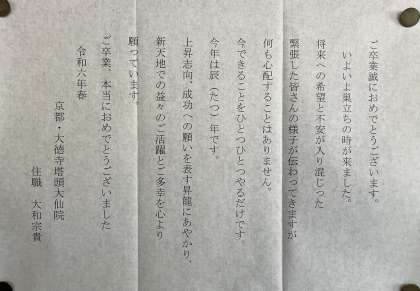 ご卒業誠におめでとうございます。
いよいよ巣立ちの時が来ました。
将来への希望と不安が入り混じった
緊張した皆さんの様子が伝わってきますが
何も心配することはありません。
今できることをひとつひとつやるだけです
今年は辰（たつ）年です。
上昇志向、成功への願いを表す昇龍にあやかり、
新天地での益々のご活躍とご多幸を心より
願っています。
ご卒業、本当におめでとうございました
令和六年春
京都・大徳寺塔頭大仙院
住職　大和宗貴